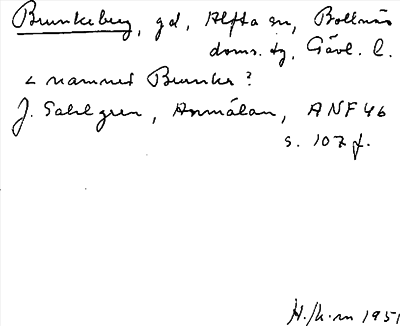 Brunkeberg, gd, Alfta sn, Bollnäs
doms. tg, Gävl. l.
< namnet Brunke?
J. Sahlgren, Anmälan, ANF 46
s. 107 f.
H./k.m 1951